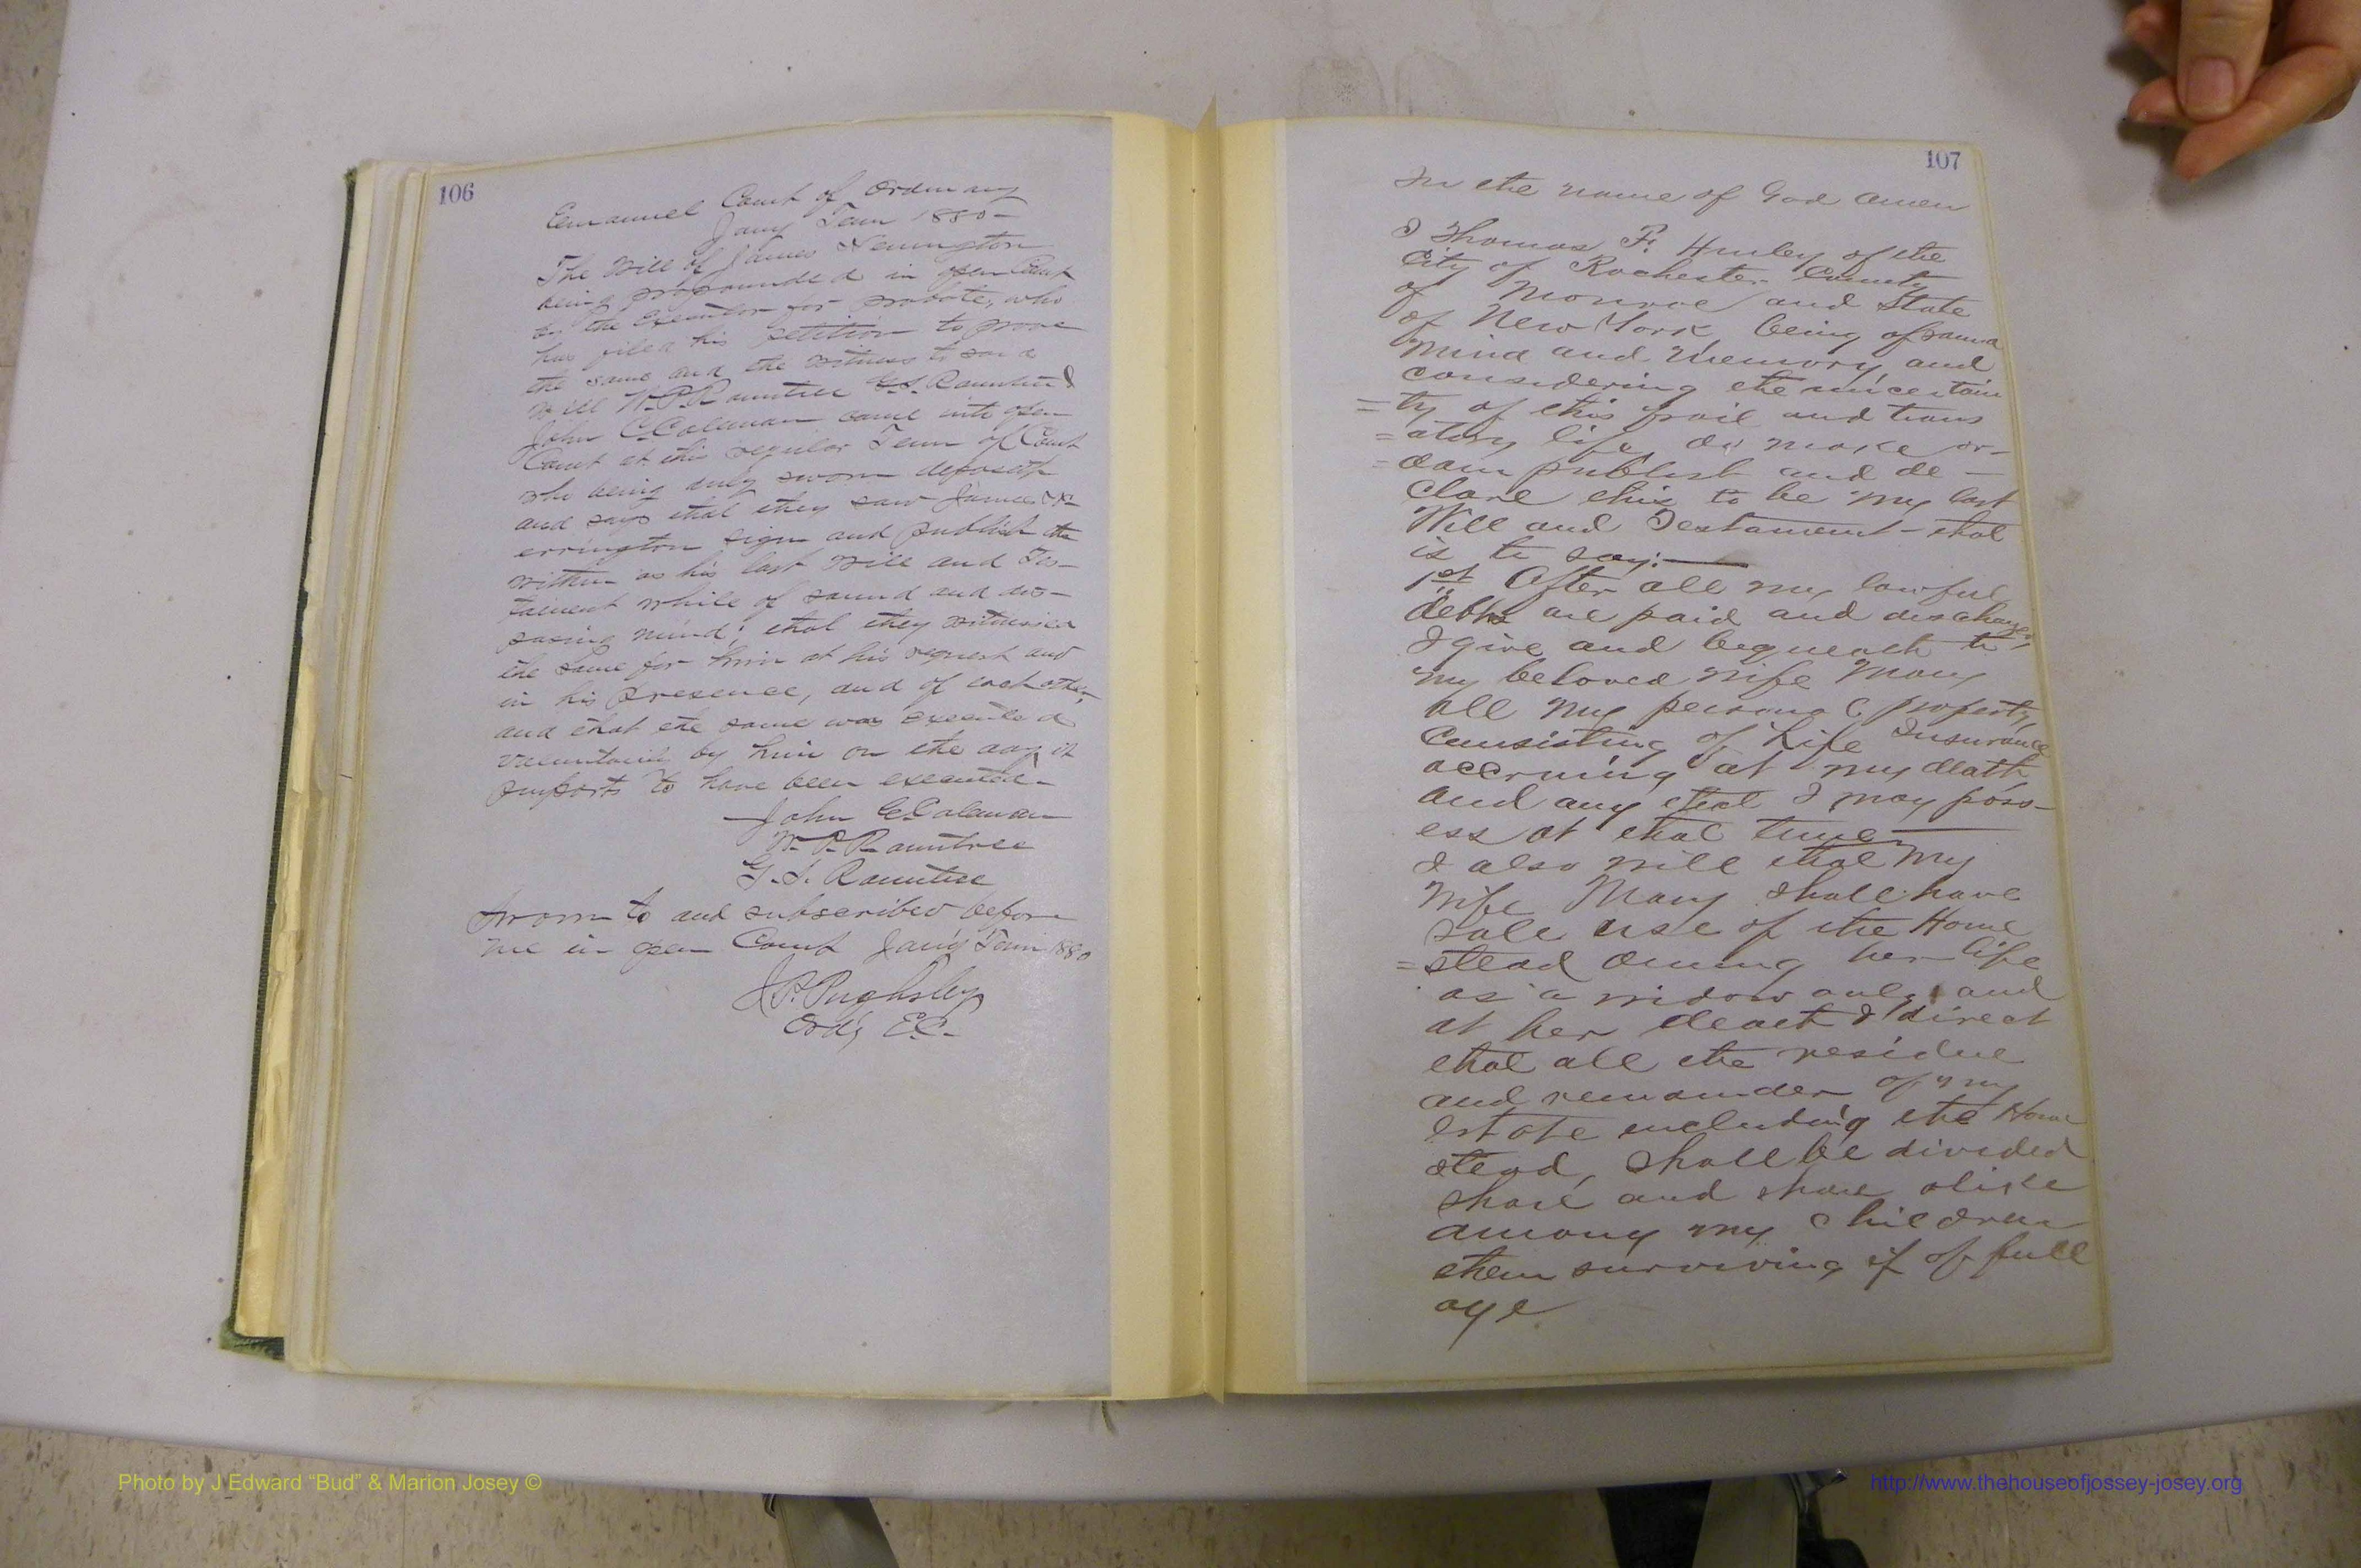 106
Emanuel Court of Ordinary
Jany Term 1880-
The Will of James
being propounded in open Court
by the Executor for probate, who
has filed his petition to prove
the same and the witness to said
will W.P. Rountree G.S. Rountree &
John C. Coleman came into open
Court at this regular Term of Court
who being duly sworn deposeth
and says that they saw James
errington sign and publish the
within as his last will and Tes-
tament while of sound and dis-
posing mind; that they witnessed
the same for him at his request and
in his presence, and of each other,
and that the same was executed
by him on the day it
purports to have been executed-
John C. Coleman
W. P. Rountree
G. S. Rountree
Sworn to and subscribed before
me in open Court Jany Term 1880
Ordy E.C.
107
In the name of God Amen
I Thomas F. Hurley of the
City of Rochester County
of Monroe and State
of New York being of sound
mind and memory, and
considering the uncertain
=ty of this frail and trans
=atory life, do make or-
=dain publish and de-
clare this to be my last
Will and Testament - that
is to say:
1st After all my lawful
debts are paid and discharged,
I give and bequeath to
my beloved wife Mary
all my personal property,
Consisting of Life Insurance
accruing at my death
and any that I may poss-
ess at that time
I also will that my
Wife Mary shall have
sole use of the Home
=stead During her life
as a widow only and
at her death I direct
that all the residue
and remainder of my
estate including the Home
stead, Shall be divided
share and share alike
among my children
them surviving if of full
age
Photo by J Edward “Bud” & Marion Josey ©
http://www.thehouseofjossey-josey.org